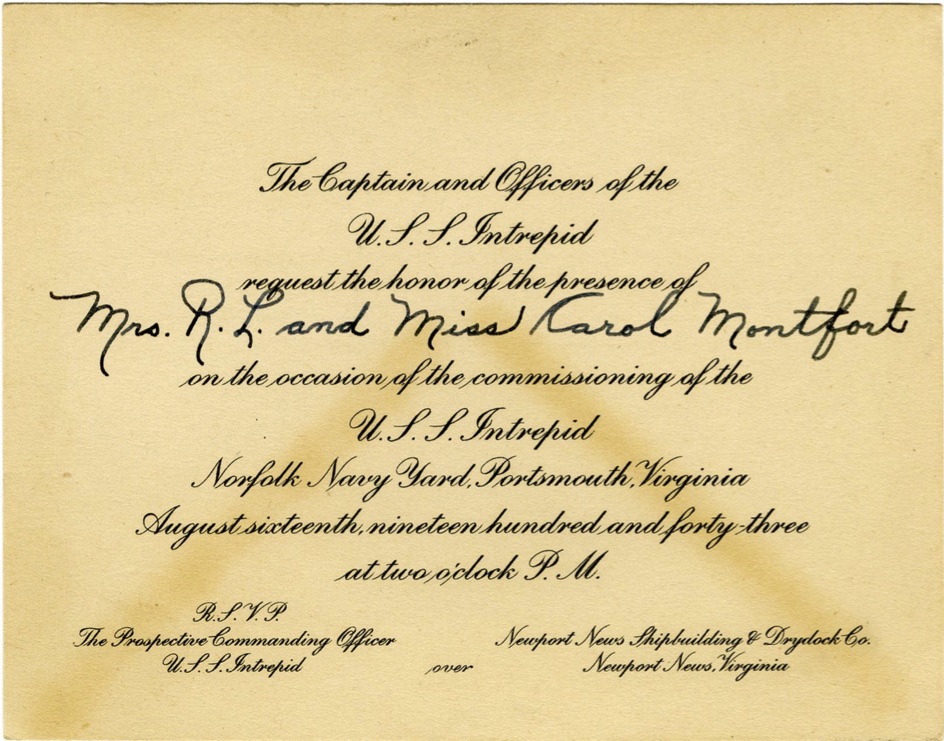 The Captain and Officers of the
U. S. S. Intrepid
request the honor of the presence of
Mrs. R. L. and Miss Carol Montfort
on the occasion of the commissioning of the
U. S. S. Intrepid
Norfolk Navy Yard, Portsmouth, Virginia
August sixteenth, nineteen hundred and forty-three
at two o'clock P. M.
R. S. V. P.
The Prospective Commanding Officer
U. S. S. Intrepid
over
Newport News Shipbuilding & Drydock Co.
Newport News, Virginia